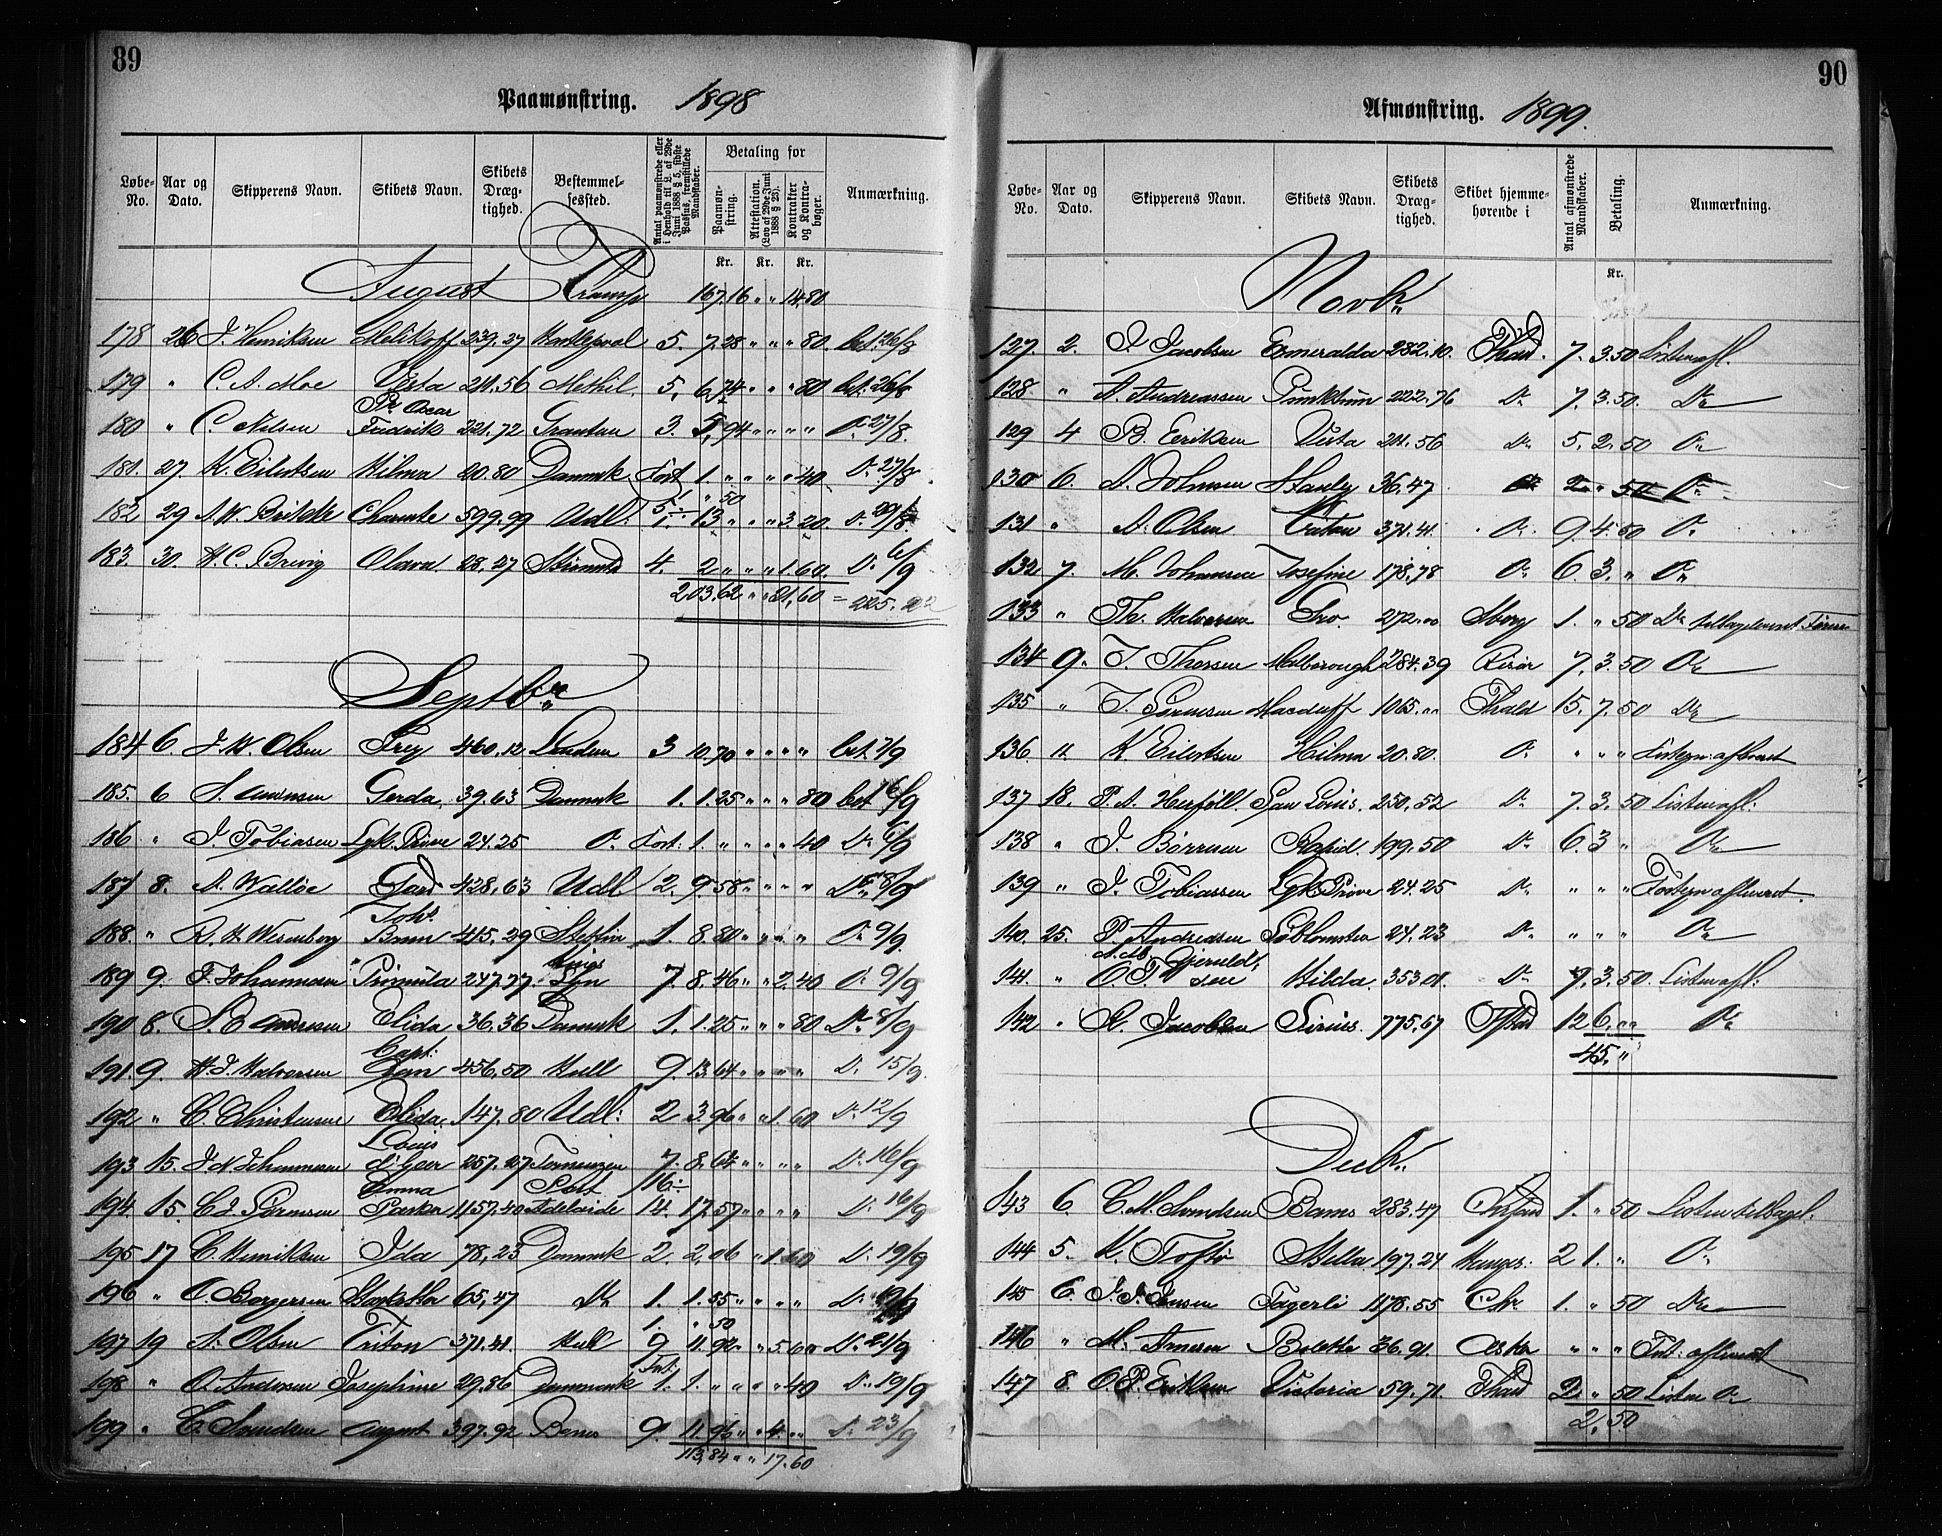 89
Paamønstring. 1898
Løbe-No. Aar og Dato. Skipperens Navn. Skibets Navn. Skibets Dræg-tighed. Bestemmel-sessted. Antal paamønstrede eller i Henhold til L. af 29de Juni 1888 § 5, sidste Passus, fremstillede Mandskaber. Betaling for Paamøn-string. Attestation. (Lov af 29de Juni 1888 § 23). Kontrakter og Kontra-bøger. Anmærkning.
Kr. Kr. Kr.
August Transp 167.16 " " 14.80
178 26 J. Henriksen Melikoff 239.27 Hartlepool 5. 7.28 " " " 80. bet. 26/8
179 " C. A. Moe Vesta 211.56 Methil 5. 6.74 " " " 80 bet. 26/8
180 " C. Nilsen Pr Oscar Fredrik 221.72 Granton 3. 5.94 " " " " Do 27/8.
181. 27. K. Eilertsen Hilma 20.80 Danmark Fort 1. " " " " 40 Do 27/8
1 " 50
182 29 A. W. Charente 599.99 Udl. 13 " " " 3.20 Do 29/8
183. 30. H. C. Brevig Olava 28.27 4. 2 " " " 1.60. Do 6/9
203.62 " " 21.60 = 225.22
Septbr
184 6 J. H. Olsen Frey 460.12 London 3 10.70 " " " " bet. 7/9
185. 6 S. Gerda 39.63 Danmark 1. 1.25 " " " 80 bet 6/9
186 " J. Tobiasen Lyk. Prøve 24.25 Do Fort: 1. " " " " 40 Do 6/9
187 8. A. Walløe Gard 428.63 Udl 2. 9.58 " " " " Do 8/9
188. " R. H. Wesenberg Johs Brun 415.29 Stettin 1. 8.80 " " " " Do 9/9.
189 9. F. Johannesen Primula 247.77 Kings Lyn 7. 8.46 " " 2.40 Do 9/9
190 8. S. E. Andersen Elida 36.36 Danmark 1. 1.25 " " " 80 Do 8/9
191 9. H. J. Halvorsen Capt: 456.50 Hull 9. 13.64 " " " " Do 15/9
192 " C. Christensen Elida 147.80 Udl: 2 3.96 " " 1.60 Do 12/9
193 15. J. N. Johannesen Louis d'Geer 257.27 7. 8.64 " " " " Do 16/9
194. 15. C. J. Sørensen Emma Parker 1157.40 Port Adelaide 16: 14. 17.57 " " " " Do 16/9
195 17 C. Henriksen Ida 78.23 Danmark 2. 2.06 " " 1.60 Do 19/9
196 " O. Børgersen Stærkodder 65.47 Do 1. 1.55 " " " " Do 19/9
1. " 50
197 19 A. Olsen Triton 371.41 Hull 9 11.90 " " 5.60 Do 21/9
198 " O. Andersen Josephine 29.86 Danmark Fort: 1. 1. " " " " 40 Do 19/9
199 " C. Svendsen August 397.92 Barrow 9. 11.96 " " 4. " " Do 23/9
113.84 " " 17.60
90
Afmønstring. 1899.
Løbe-No. Aar og Dato. Skipperens Navn. Skibets Navn. Skibets Dræg-tighed. Skibet hjemme-hørende i Antal afmønstrede Mandskaber. Betaling. Anmærkning.
Kr.
Novbr
127. 2. J. Jacobsen Esmeralda 282.10. Thrsd. 7. 3.50 Listen afl.
128 " A. Andreassen Punktum 222.76 Do 7. 3.50. Do
129 4 B. Eeriksen Vesta 211.56 Do 5. 2.50 Do
130 6. A. Johnsen Stanley 36.47 Do 2. " 50 Do
131 " A. Olsen Triton 371.41. Do 9 4.50 Do
132 7. M. Johannsen Josefine 178.78 Do 6 3. " Do
133 " Th. Halvorsen Gro. 272.00 Aborg 1. " 50 Do tilbagleveret Føreren
134 9. T. Thorsen Malborough 284.39 Risør 7. 3.50 Do
135 " T. Sørensen Macduff 1065. " " Thrsd 15. 7.50 Do
136. 11. K. Eilertsen Hilma 20.80. Do " " " Fortegn: afleveret
137 18. P. A. Herføll. San Louis. 250.52 Do 7. 3.50 Listen afl:
138 " J. Børresen Rapid. 199.50 Do 6. 3 " Do
139 " J. Tobiassen Lyk. Prøve 24.25 Do " " " Fortegn afleveret.
140. 25. P. Andreasen Solblomsten 24.23 Do " " " Do
141 " O. T. Gjeruldsen Hilda 353.01. Do 7. 3.50. Listen afl:
142 " A. Jacobsen Sirius. 775.67 12 6. " " Do
45. "
Decbr.
143 6. C. M. Svendsen Bams 283.47 1. " 50 Listen tilbagel:
144 5. K. Toftø Stella 197.24 Hauges: 2 1. " Do
145 6. J. P. Jensen Fagerli 1178.55 Chr 1. " 50 Do
146 " M. Arnesen 36.91. " " " Fort: afleveret
147 8 O. P. Eriksen Victoria 59.71 Thrsd 2 " 50 Listen Do
2.50